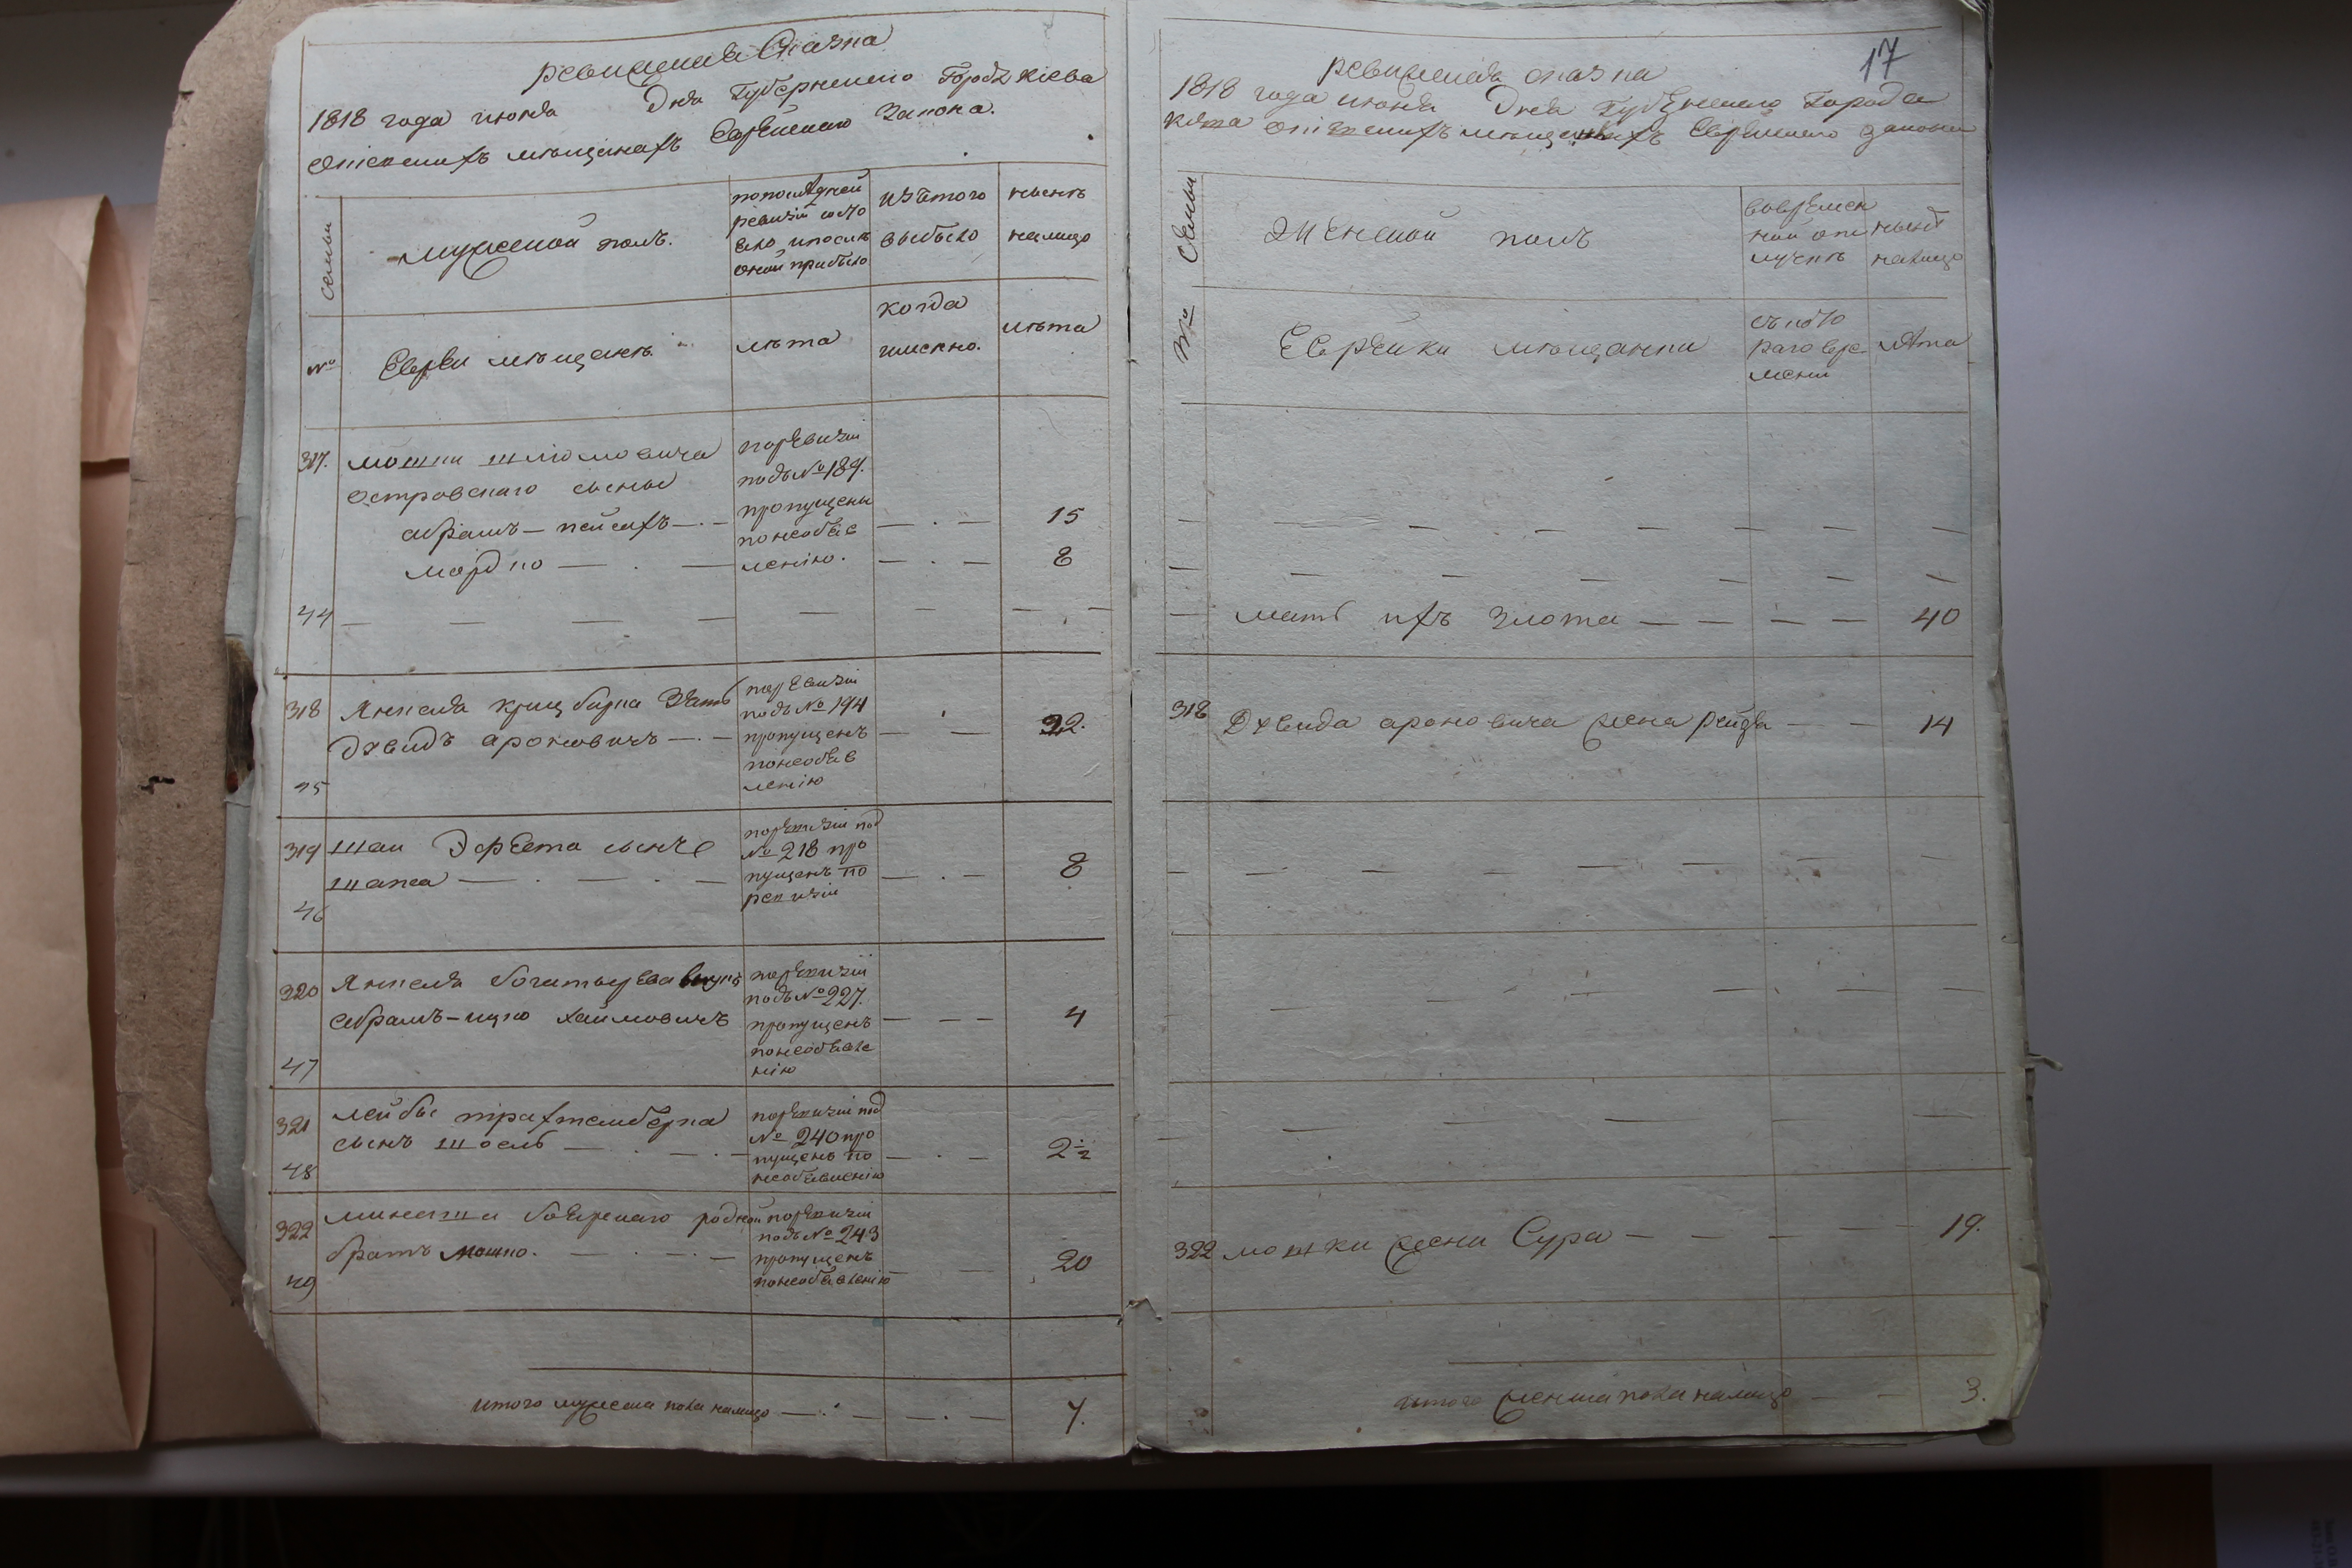 ревижская Сказка
1818 года июня Дня Губернского Города Кіева
о еврейскихъ мѣщанахъ Еврейскаго Закона.
семьи
мужеской полъ.
по последней
ревизіи состо
яло и после
оной прибыло
изъ того
выбыло
нынѣ
налицо
№
Евреи мѣщане
лѣта
когда
именно.
лѣта
317.
мошки шліомовича
островскаго сыны
абрамъ — пейсахъ
мордко
по ревизіи
подъ № 189.
пропущены
по необъяв
ленію.
15
8
44
318
Янкеля зять
Давидъ ароновичъ
по ревизіи
подъ № 194
пропущенъ
по необъяв
ленію
22.
45
319
шаи сынъ
по ревизіи под
№ 218 про
пущенъ по
ревизіи
8
46
320
Янкеля богатырева внукъ
абрамъ-ицко хаимовичъ
по ревизіи
подъ № 227.
пропущенъ
по необъявле
нію
4
47
321
лейбы трахтемберга
сынъ
по ревизіи под
№ 240 про
пущенъ по
необъявленію
2½
48
322
родной
братъ мошко.
по ревизіи
подъ № 243
пропущенъ
по необъявленію
20
49
итого мужеска пола налицо
7.
17
ревижская сказка
1818 года июня Дня Губернского Города
Кіева мѣщанахъ Еврейскаго закона
№ Семьи
Женской полъ
во времен
ной отлу
лучкѣ
нынѣ
налицо
Еврейки мѣщанки
съ кото
раго вре
мени
лѣта
мать ихъ злота
40
318
Давида ароновича жена рейзя
14
322
мошки жена Сура
19.
итого женска пола налицо
3.